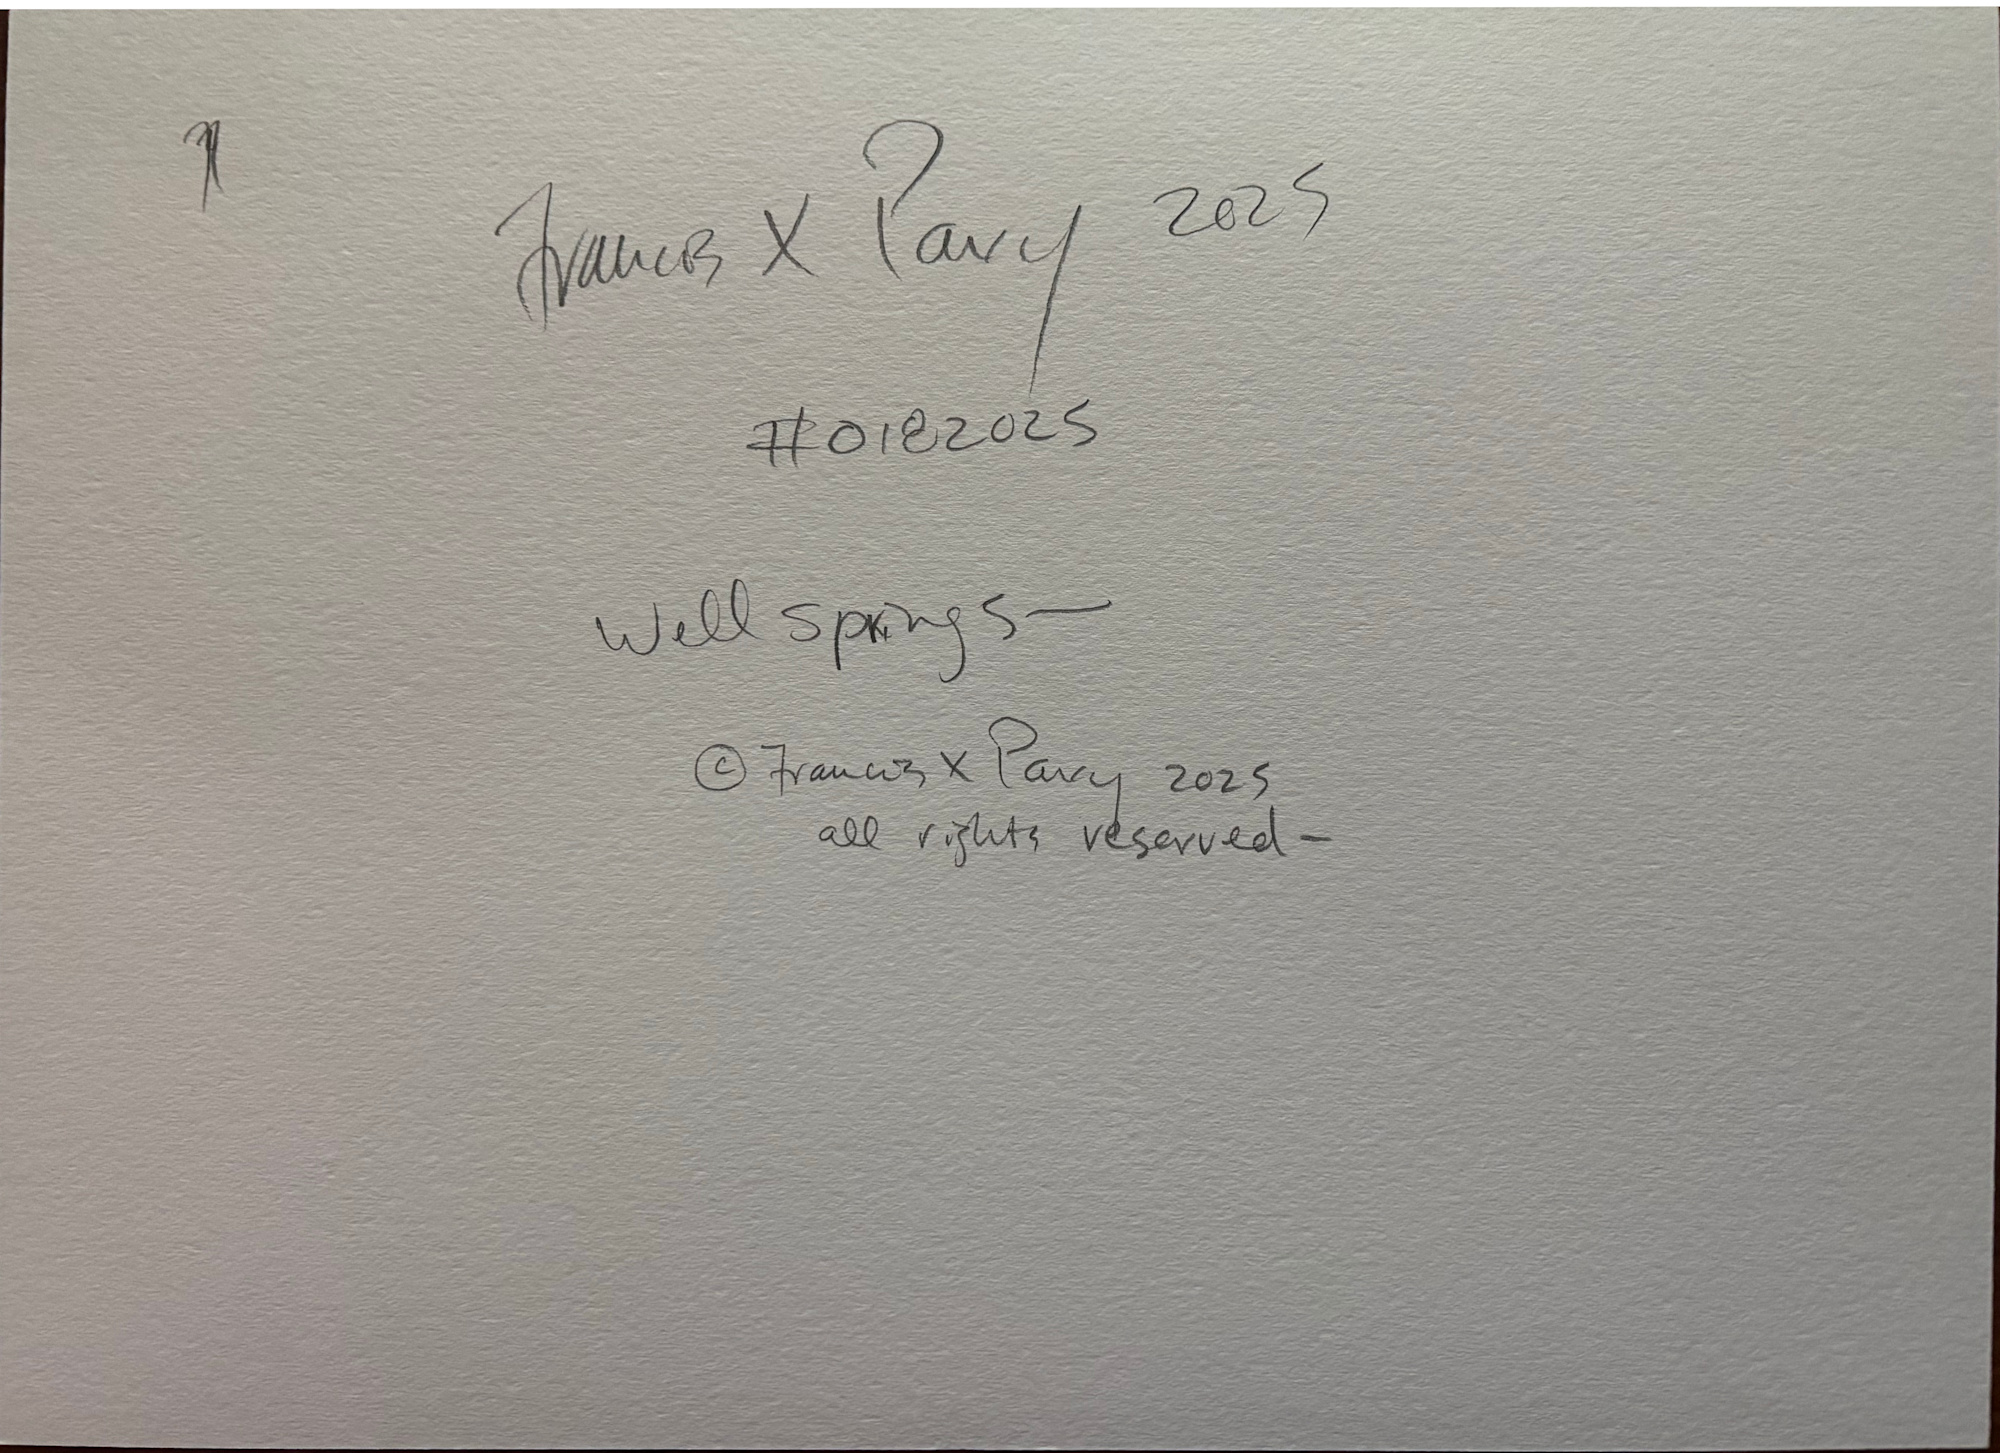 Francis X Pavy 2025
#0182025
Well springs—
© Francis X Pavy 2025
all rights reserved—